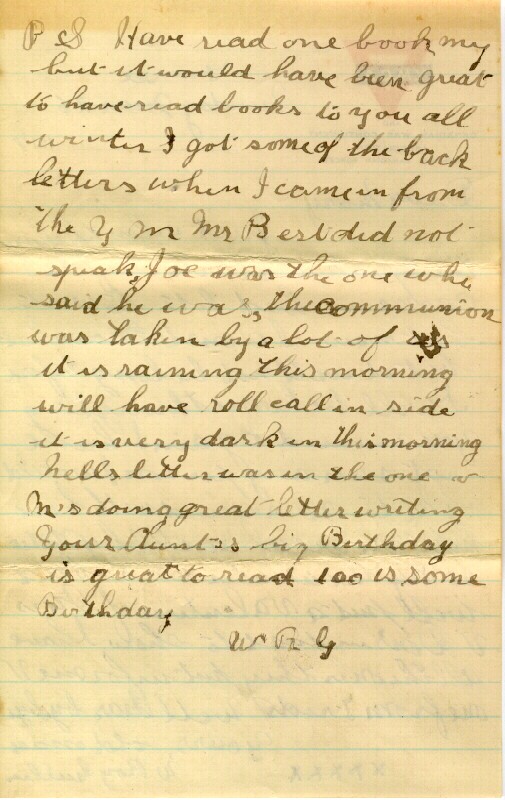 P S Have read one book my
but it would have been great
to have read books to you all
winter I got some of the back
letters when I came in from
the Y M Mr Best did not
speak, Joe was the one who
said he was, the communion
was taken by a lot of us
it is raining this morning
will have roll call in side
it is very dark in this morning
Nells letter was in the one
M's doing great letter writing
Your Aunt's big Birthday
is great to read 100 is some
Birthday
W R G